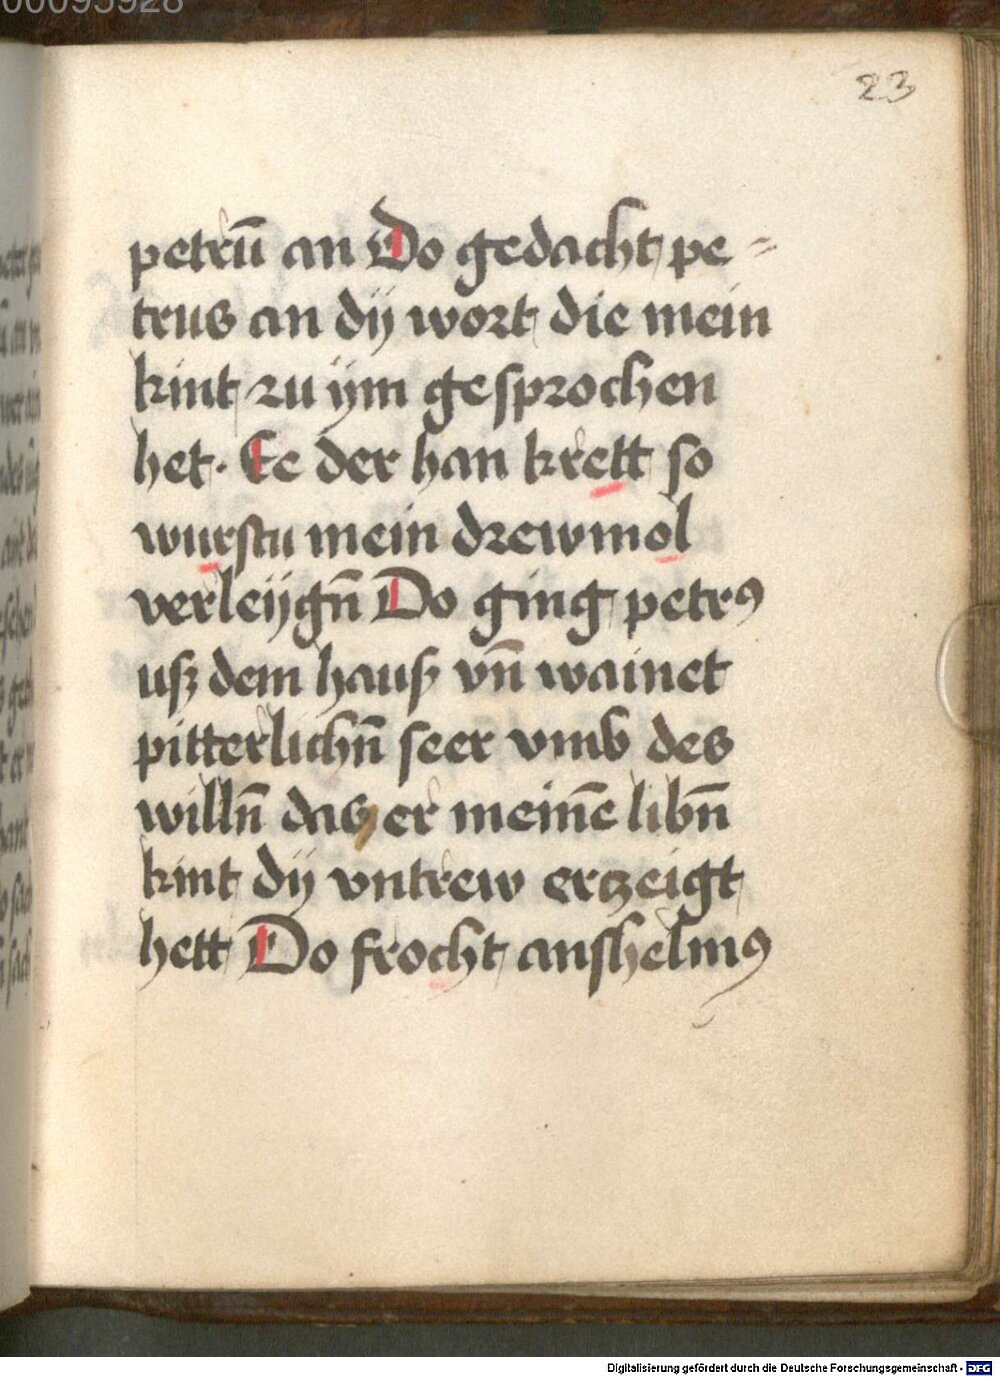 00095928
23
petrū an Do gedacht pe-
trus an dÿ wort die mein
kint zu ÿm gesprochen
het. Ee der han krett so
wurstu mein drewmol
verleÿgn̄ Do ging petrꝰ
usz dem hausz vn̄ wainet
pitterlichn̄ seer vmb des
willn̄ das er mein̄e libn̄
kint dÿ vntrew erzeigt
hett Do frocht anshelmꝰ
Digitalisierung gefördert durch die Deutsche Forschungsgemeinschaft - DFG